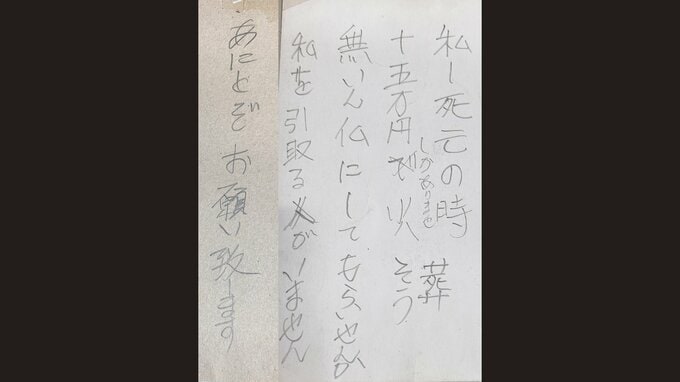 私し死亡の時 葬
しかありませ
十五万円で火そう
無いん仏にしてもらいせんか
私を引取る人がいません
なにとぞお願い致します